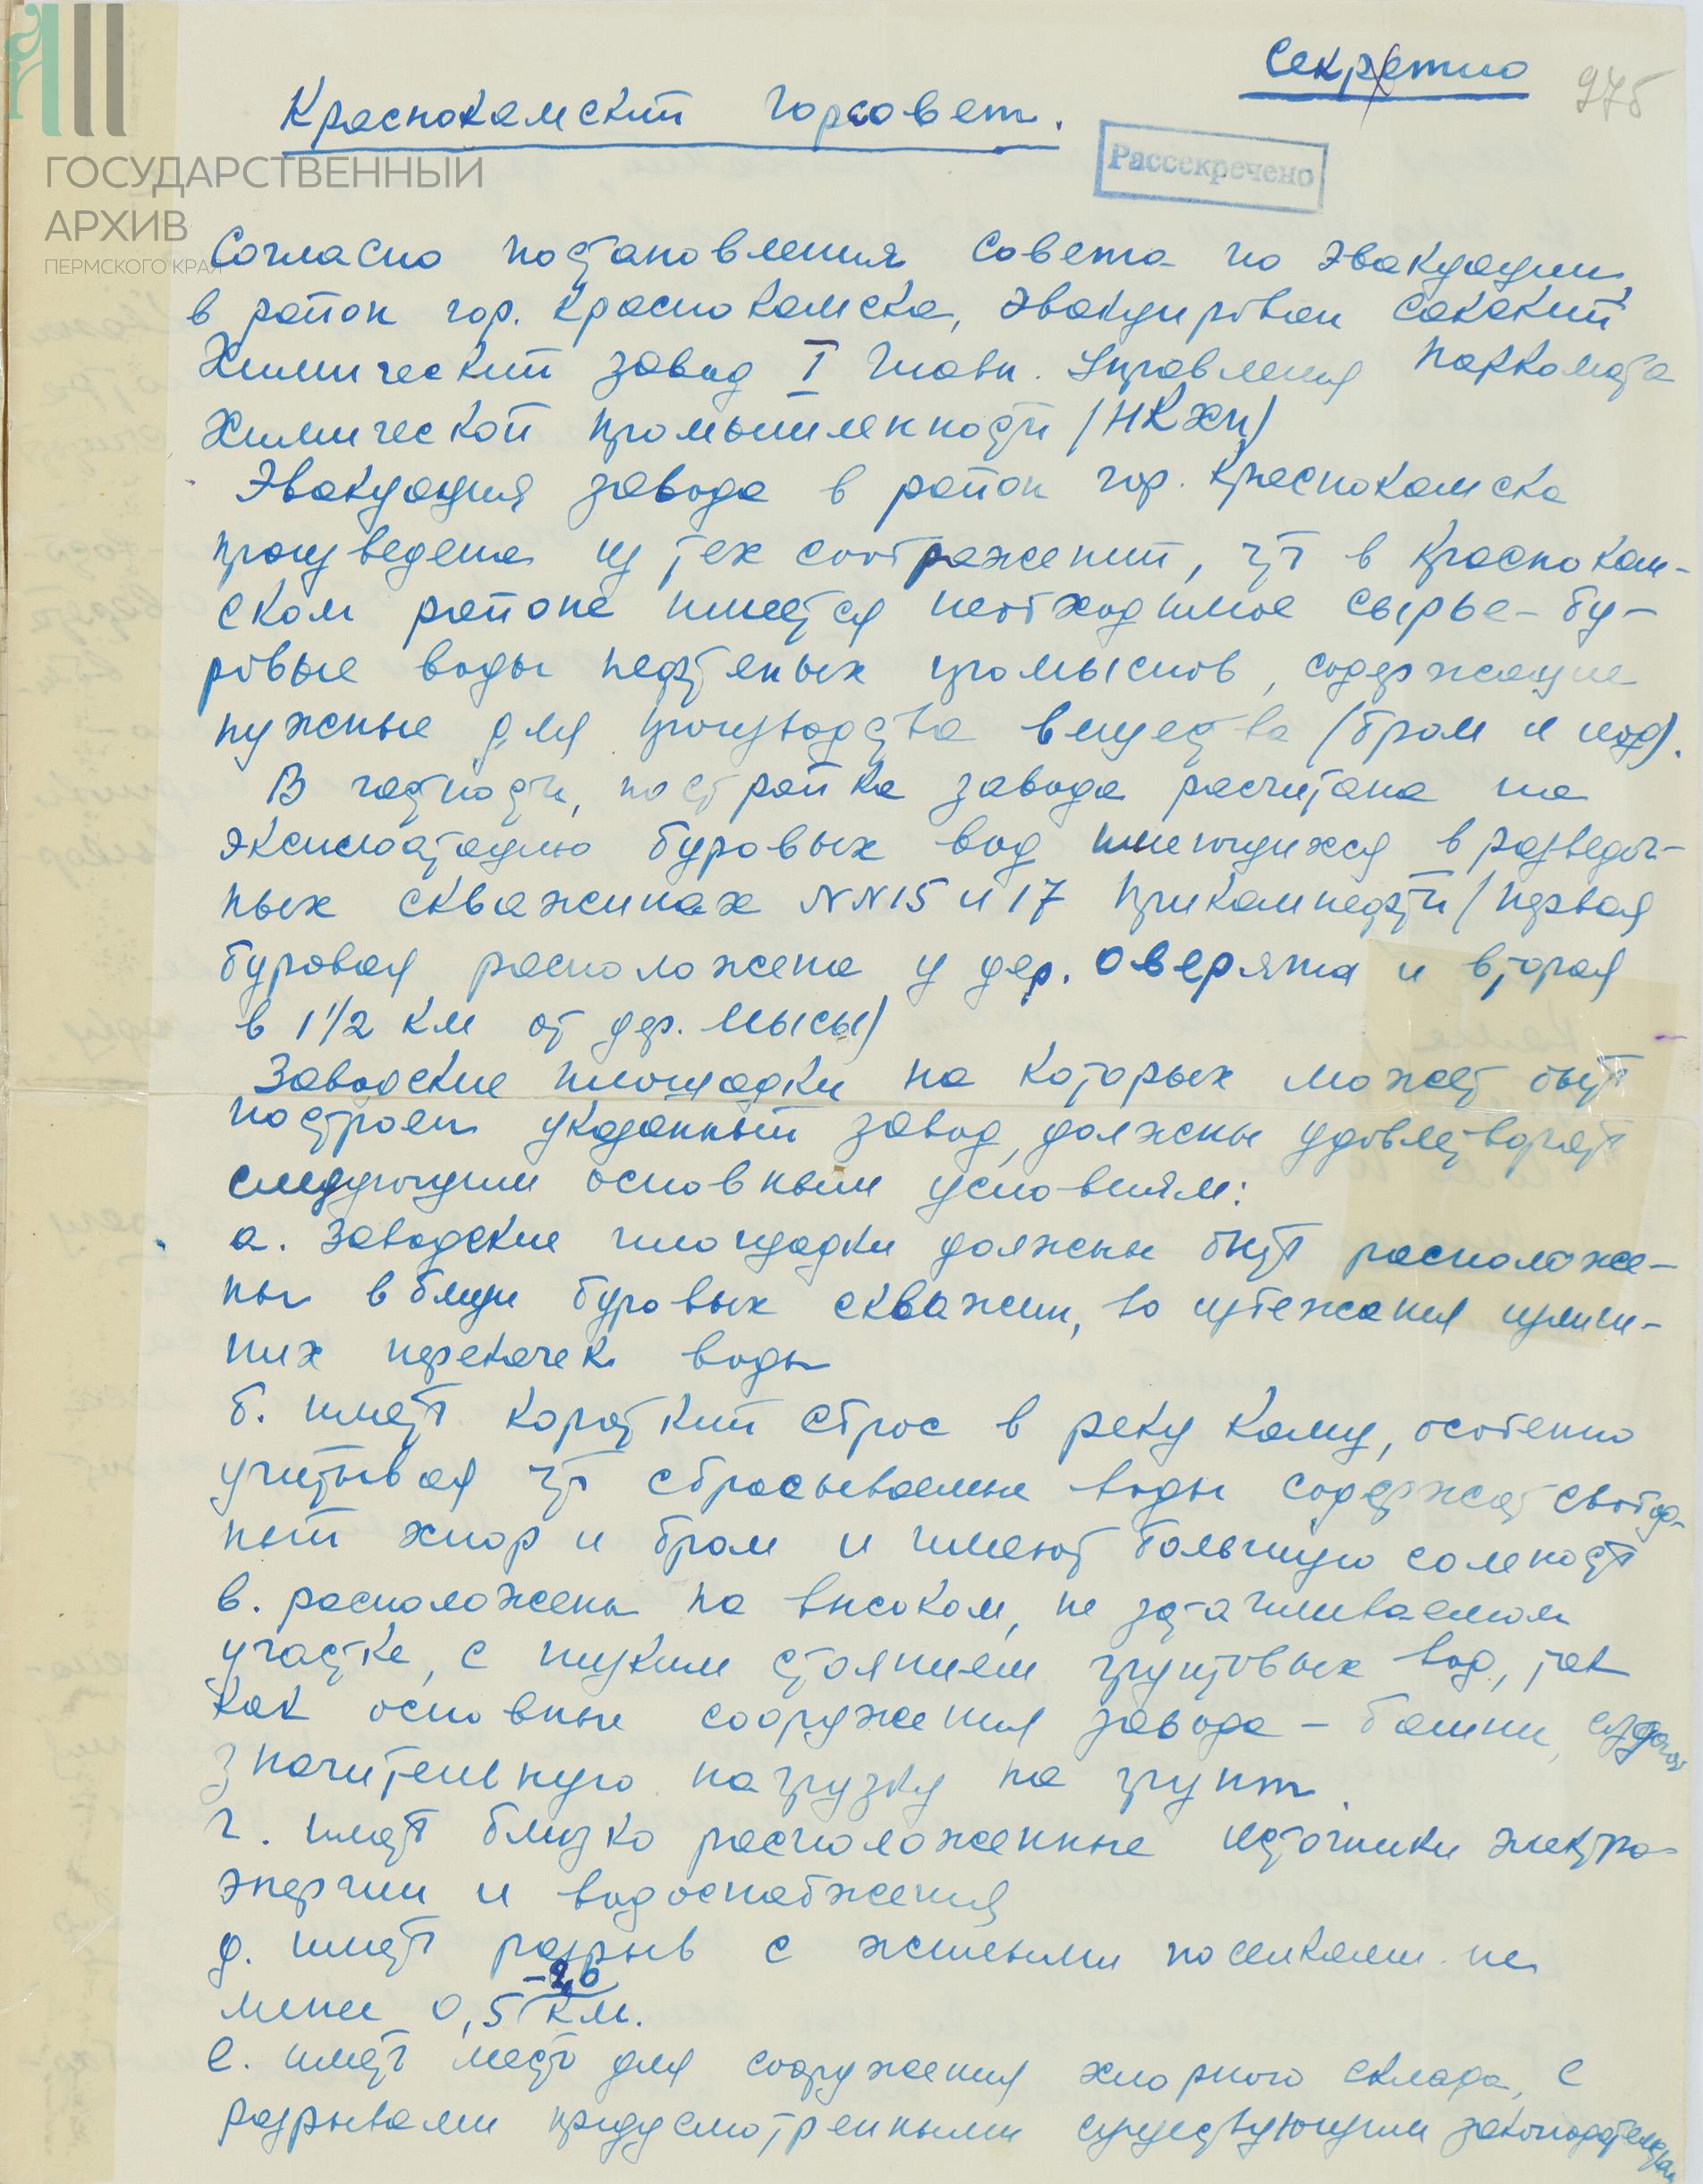 Секретно
975
Краснокамский Горсовет.
Рассекречено
ГОСУДАРСТВЕННЫЙ
АРХИВ
ПЕРМСКОГО КРАЯ
Согласно постановления Совета по эвакуации,
в район гор. Краснокамска, эвакуирован Сакский
Химический завод I Главн. Управления Наркомата
Химической промышленности /НКХП/
Эвакуация завода в район гор. Краснокамска
произведена из тех соображений, что в Краснокам-
ском районе имеется необходимое сырье – бу-
ровые воды нефтяных промыслов, содержащие
нужные для производства вещества (бром и иод).
В частности, постройка завода расчитана на
эксплоатацию буровых вод имеющихся в разведоч-
ных скважинах NN 15 и 17 Прикамнефти /первая
буровая расположена у дер. Оверята и вторая
в 1 1/2 км от дер. Мысы/
Заводские площадки на которых может быть
построен указанный завод, должны удовлетворять
следующим основным условиям:
а. Заводские площадки должны быть расположе-
ны вблизи буровых скважин, во избежания излиш-
них перекачек воды
б. иметь короткий сброс в реку Каму, особенно
учитывая что сбрасываемые воды содержат свобод-
ный хлор и бром и имеют большую солность
в. расположены на высоком, не затапливаемом
участке, с низким стоянием грунтовых вод, так
как основные сооружения завода – башни, создают
значительную нагрузку на грунт.
г. иметь близко расположенные источники электро-
энергии и водоснабжения
д. иметь разрыв с жилыми поселками не
менее 0,5 –2,0 км.
е. иметь место для сооружения хлорного склада, с
разрывами предусмотренными существующим законодательством